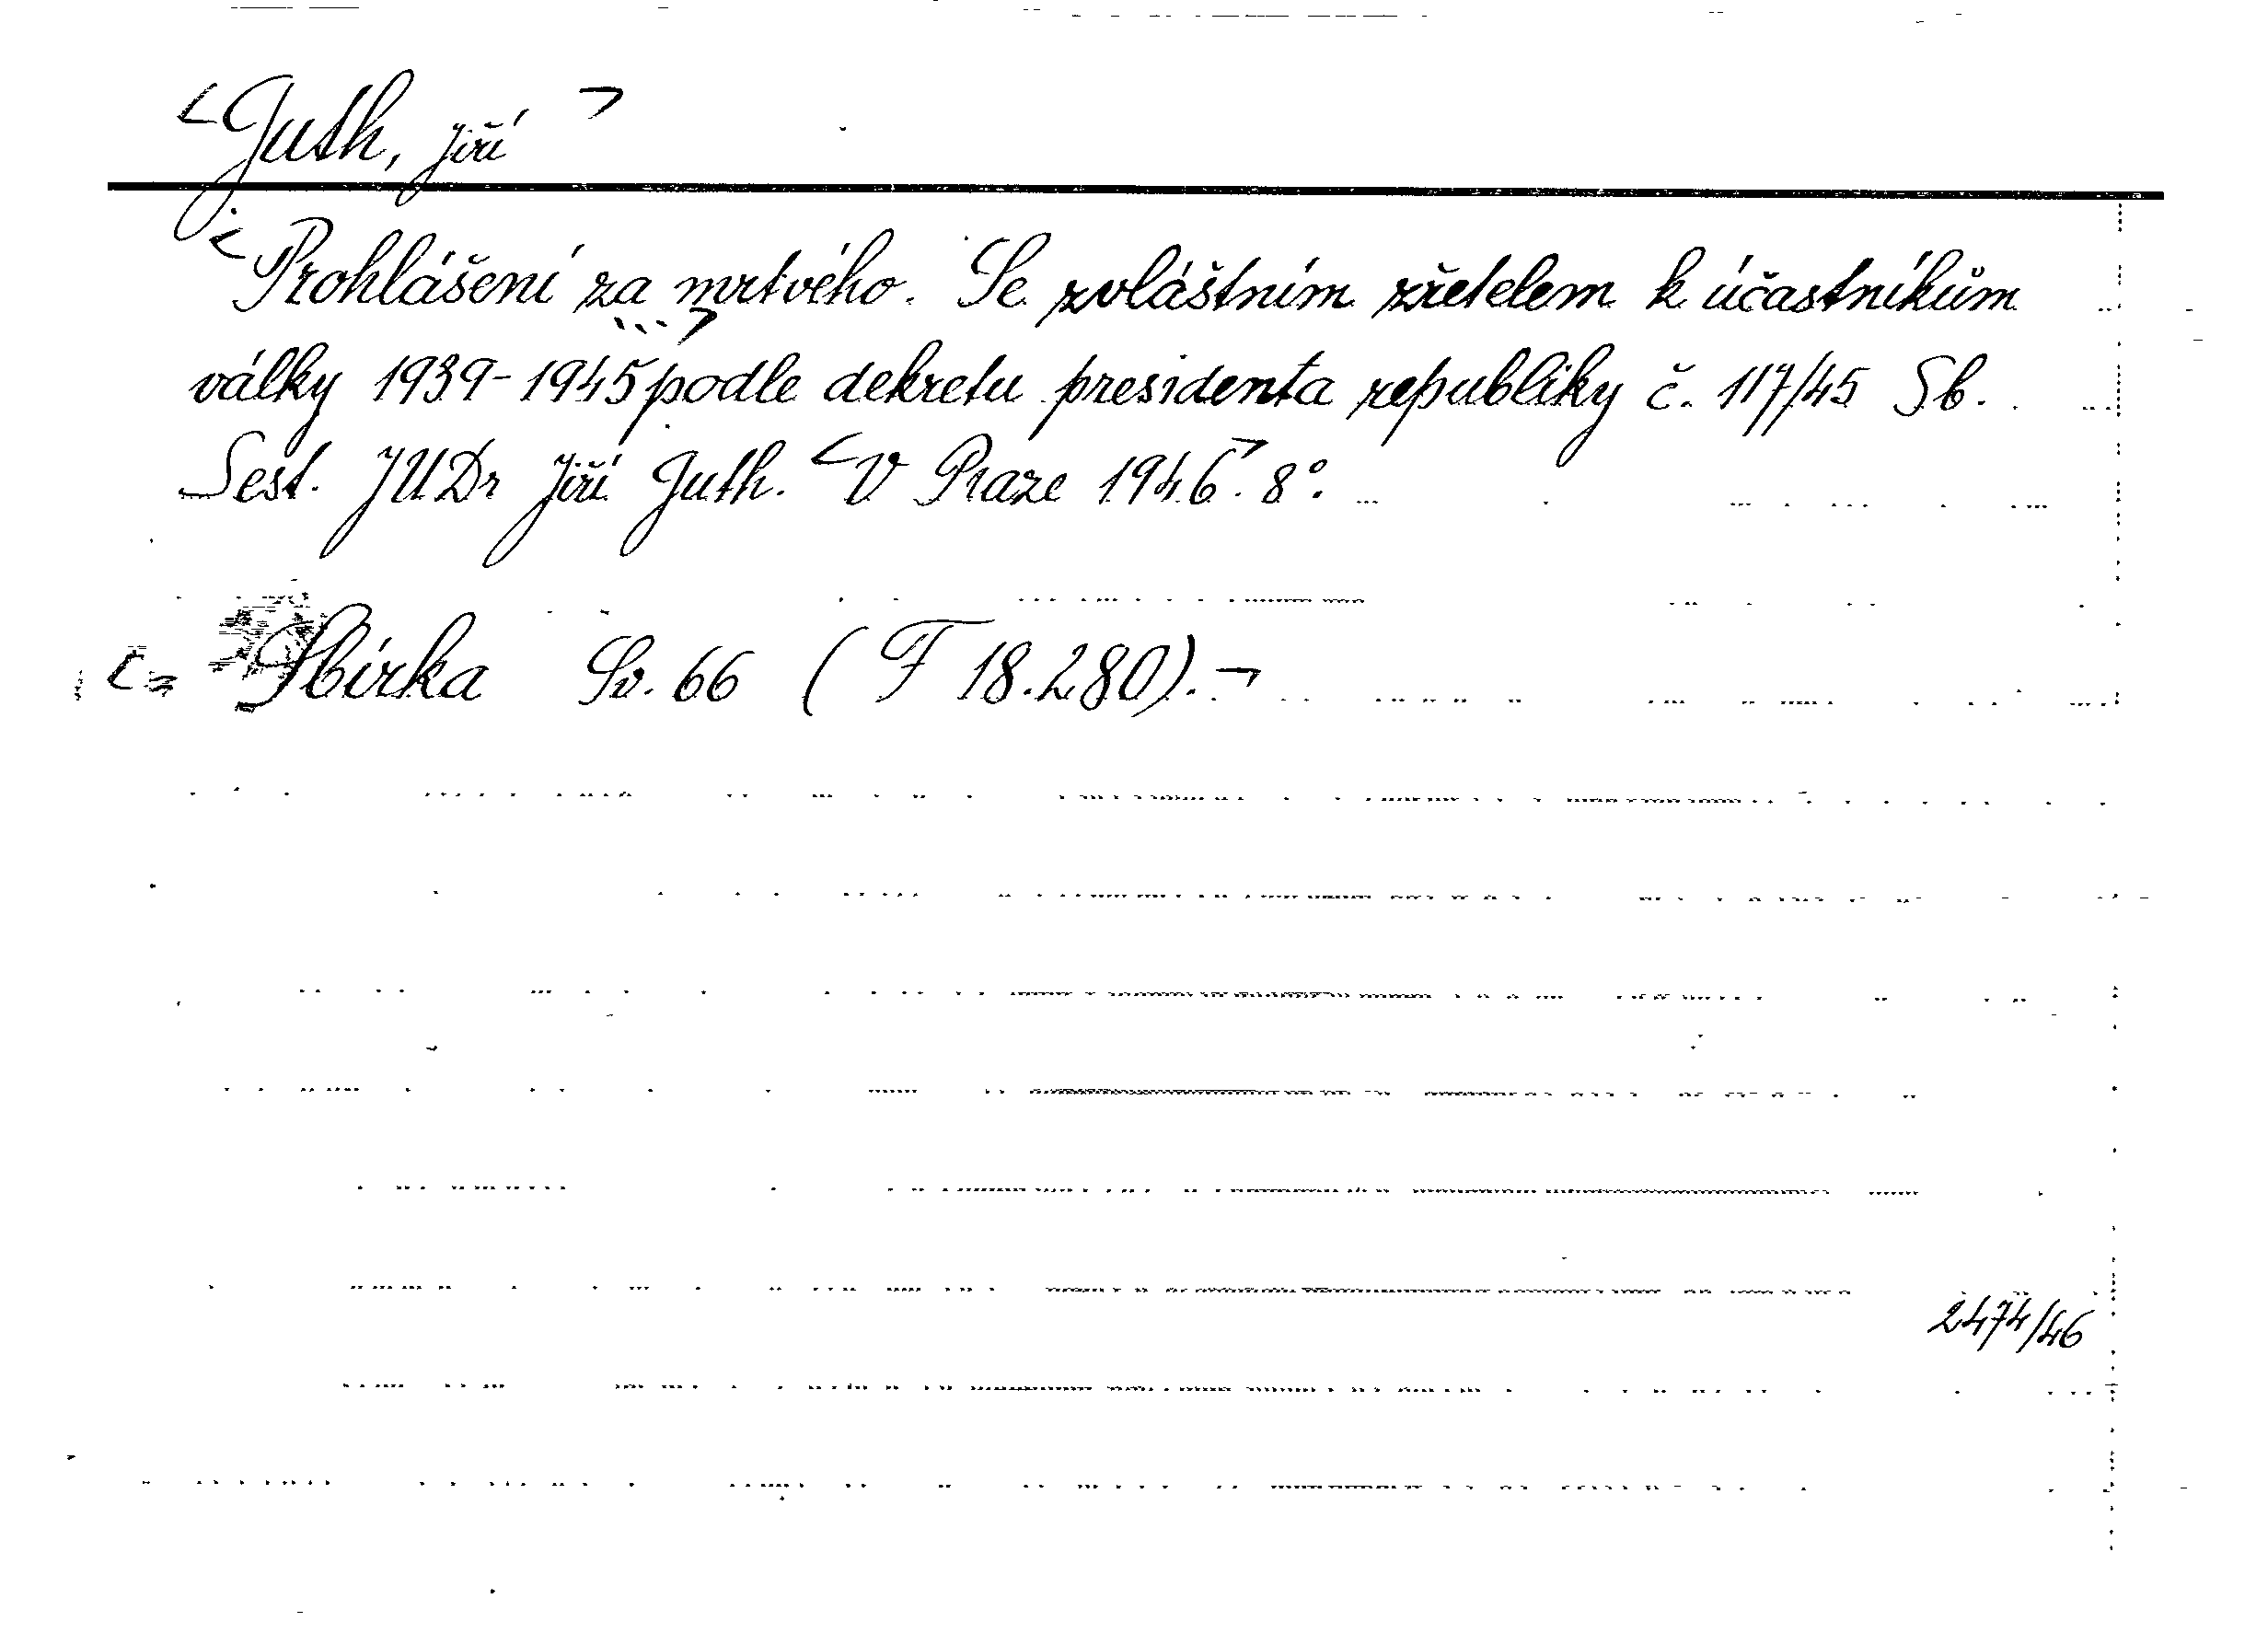 <Guth, Jiří>
<Prohlášení za mrtvého. Se zvláštním zřetelem k účastníkům
války 1939-1945...> podle dekretu presidenta republiky č. 117/45 Sb.
Sest. JUDr Jiří Guth. <V Praze 1946>. 8°.
Sbírka Sv. 66 (F 18.280).
2474/46